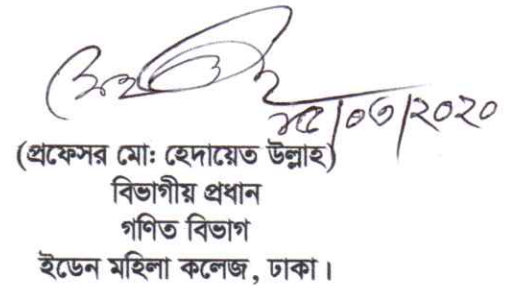 ১৫/০৩/২০২০
(প্রফেসর মো: হেদায়েত উল্লাহ)
বিভাগীয় প্রধান
গণিত বিভাগ
ইডেন মহিলা কলেজ, ঢাকা।